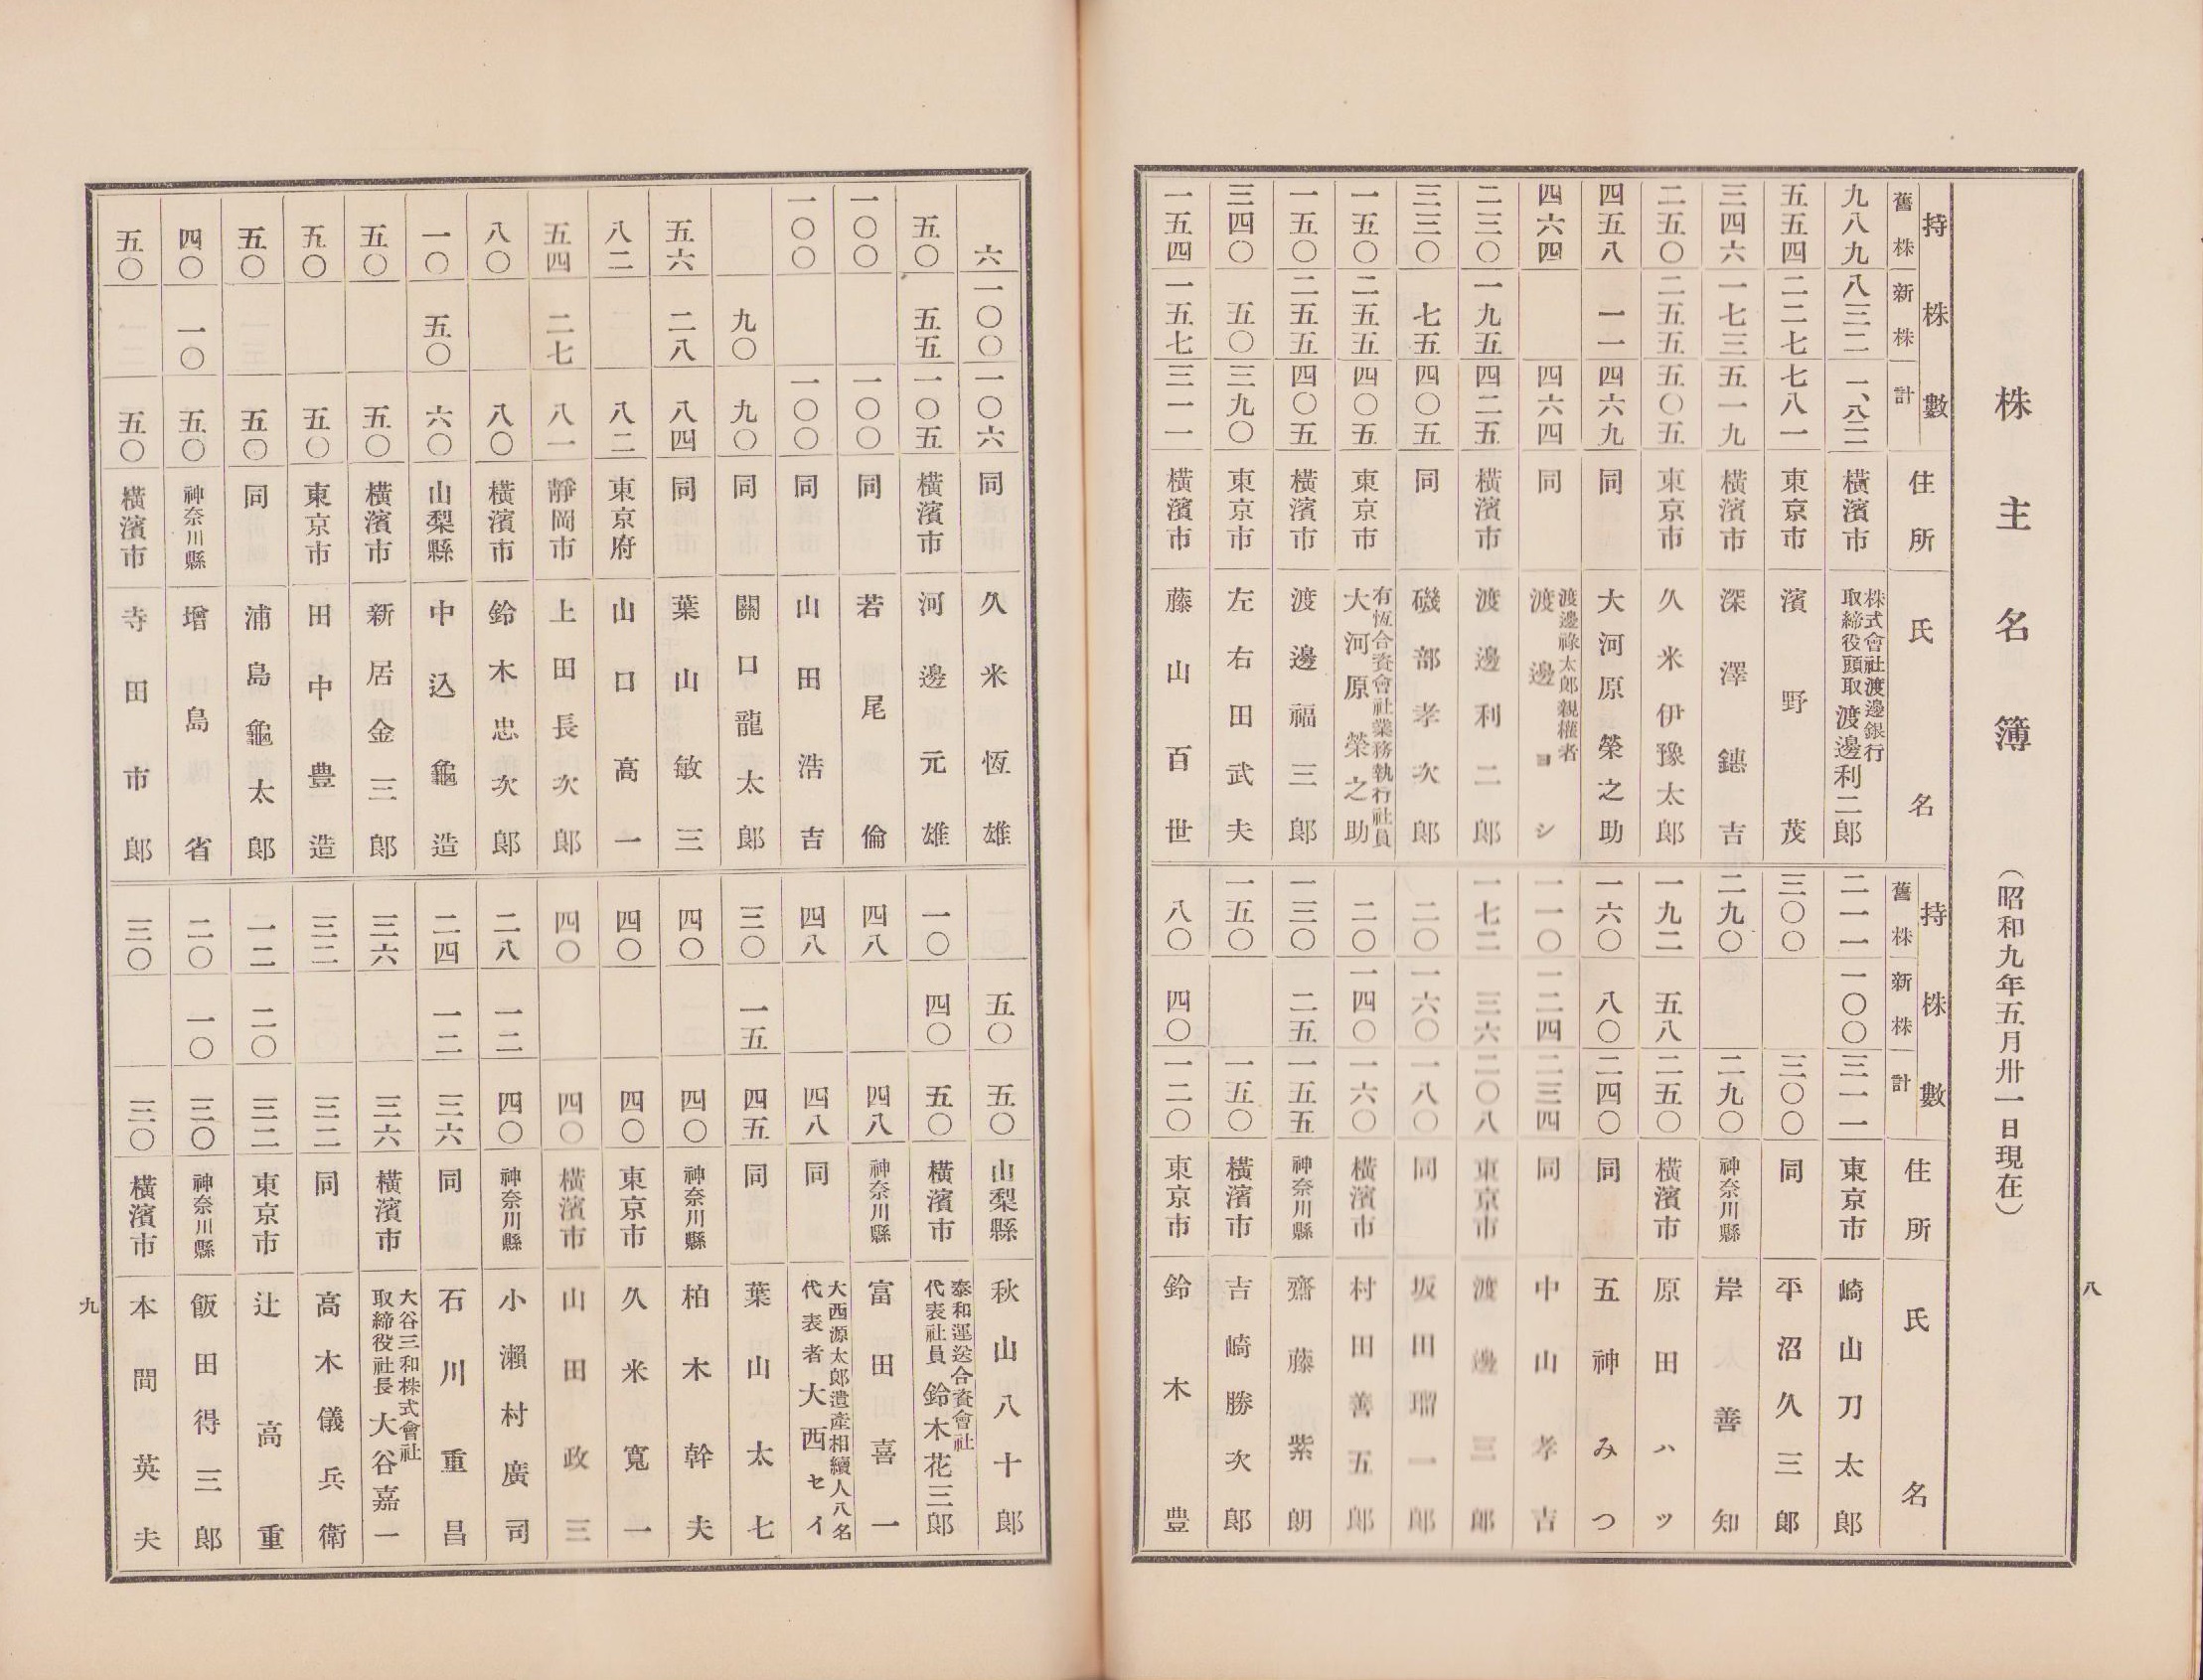 株主名簿 （昭和九年五月卅一日現在）
持株數 住所 氏名
舊株 新株 計
九八九 八三二 一、八二一 橫濱市 株式會社渡邊銀行取締役頭取 渡邊利二郎
五五四 二二七 七八一 東京市 濱野茂
三四六 一七三 五一九 橫濱市 深澤鏸吉
二五〇 二五五 五〇五 東京市 久米伊豫太郎
四五八 一一 四六九 同 大河原榮之助
四六四 四六四 同 渡邊祿太郎親權者 渡邊ヨシ
二三〇 一九五 四二五 橫濱市 渡邊利二郎
三三〇 七五 四〇五 同 磯部孝次郎
一五〇 二五五 四〇五 東京市 有恆合資會社業務執行社員 大河原榮之助
一五〇 二五五 四〇五 橫濱市 渡邊福三郎
三四〇 五〇 三九〇 東京市 左右田武夫
一五四 一五七 三一一 橫濱市 藤山百世
持株數 住所 氏名
舊株 新株 計
二一一 一〇〇 三一一 東京市 崎山刀太郎
三〇〇 三〇〇 同 平沼久三郎
二九〇 二九〇 神奈川縣 岸善知
一九二 五八 二五〇 橫濱市 原田ハツ
一六〇 八〇 二四〇 同 五神みつ
一一〇 一二四 二三四 同 中山孝吉
一七二 三六 二〇八 東京市 渡邊三郎
二〇 一六〇 一八〇 同 坂田瑠一郎
二〇 一四〇 一六〇 橫濱市 村田善五郎
一三〇 二五 一五五 神奈川縣 齋藤紫朗
一五〇 一五〇 橫濱市 吉崎勝次郎
八〇 四〇 一二〇 東京市 鈴木豊
八
六 一〇〇 一〇六 同 久米恆雄
五〇 五五 一〇五 橫濱市 河邊元雄
一〇〇 一〇〇 同 若尾倫
一〇〇 一〇〇 同 山田浩吉
九〇 九〇 同 關口龍太郎
五六 二八 八四 同 葉山敏三
八二 八二 東京府 山口高一
五四 二七 八一 靜岡市 上田長次郎
八〇 八〇 橫濱市 鈴木忠次郎
一〇 五〇 六〇 山梨縣 中込龜造
五〇 五〇 橫濱市 新居金三郎
五〇 五〇 東京市 田中豊造
五〇 五〇 同 浦島龜太郎
四〇 一〇 五〇 神奈川縣 增島省
五〇 五〇 橫濱市 寺田市郎
五〇 五〇 山梨縣 秋山八十郎
一〇 四〇 五〇 橫濱市 泰和運送合資會社代表社員 鈴木花三郎
四八 四八 神奈川縣 富田喜一
四八 四八 同 大西源太郎遺產相續人八名代表者 大西セイ
三〇 一五 四五 同 葉山太七
四〇 四〇 神奈川縣 柏木幹夫
四〇 四〇 東京市 久米寬一
四〇 四〇 橫濱市 山田政三
二八 一二 四〇 神奈川縣 小瀨村廣司
二四 一二 三六 同 石川重昌
三六 三六 橫濱市 大谷三和株式會社取締役社長 大谷嘉一
三二 三二 同 高木儀兵衛
一二 二〇 三二 東京市 辻高重
二〇 一〇 三〇 神奈川縣 飯田得三郎
三〇 三〇 橫濱市 本間英夫
九